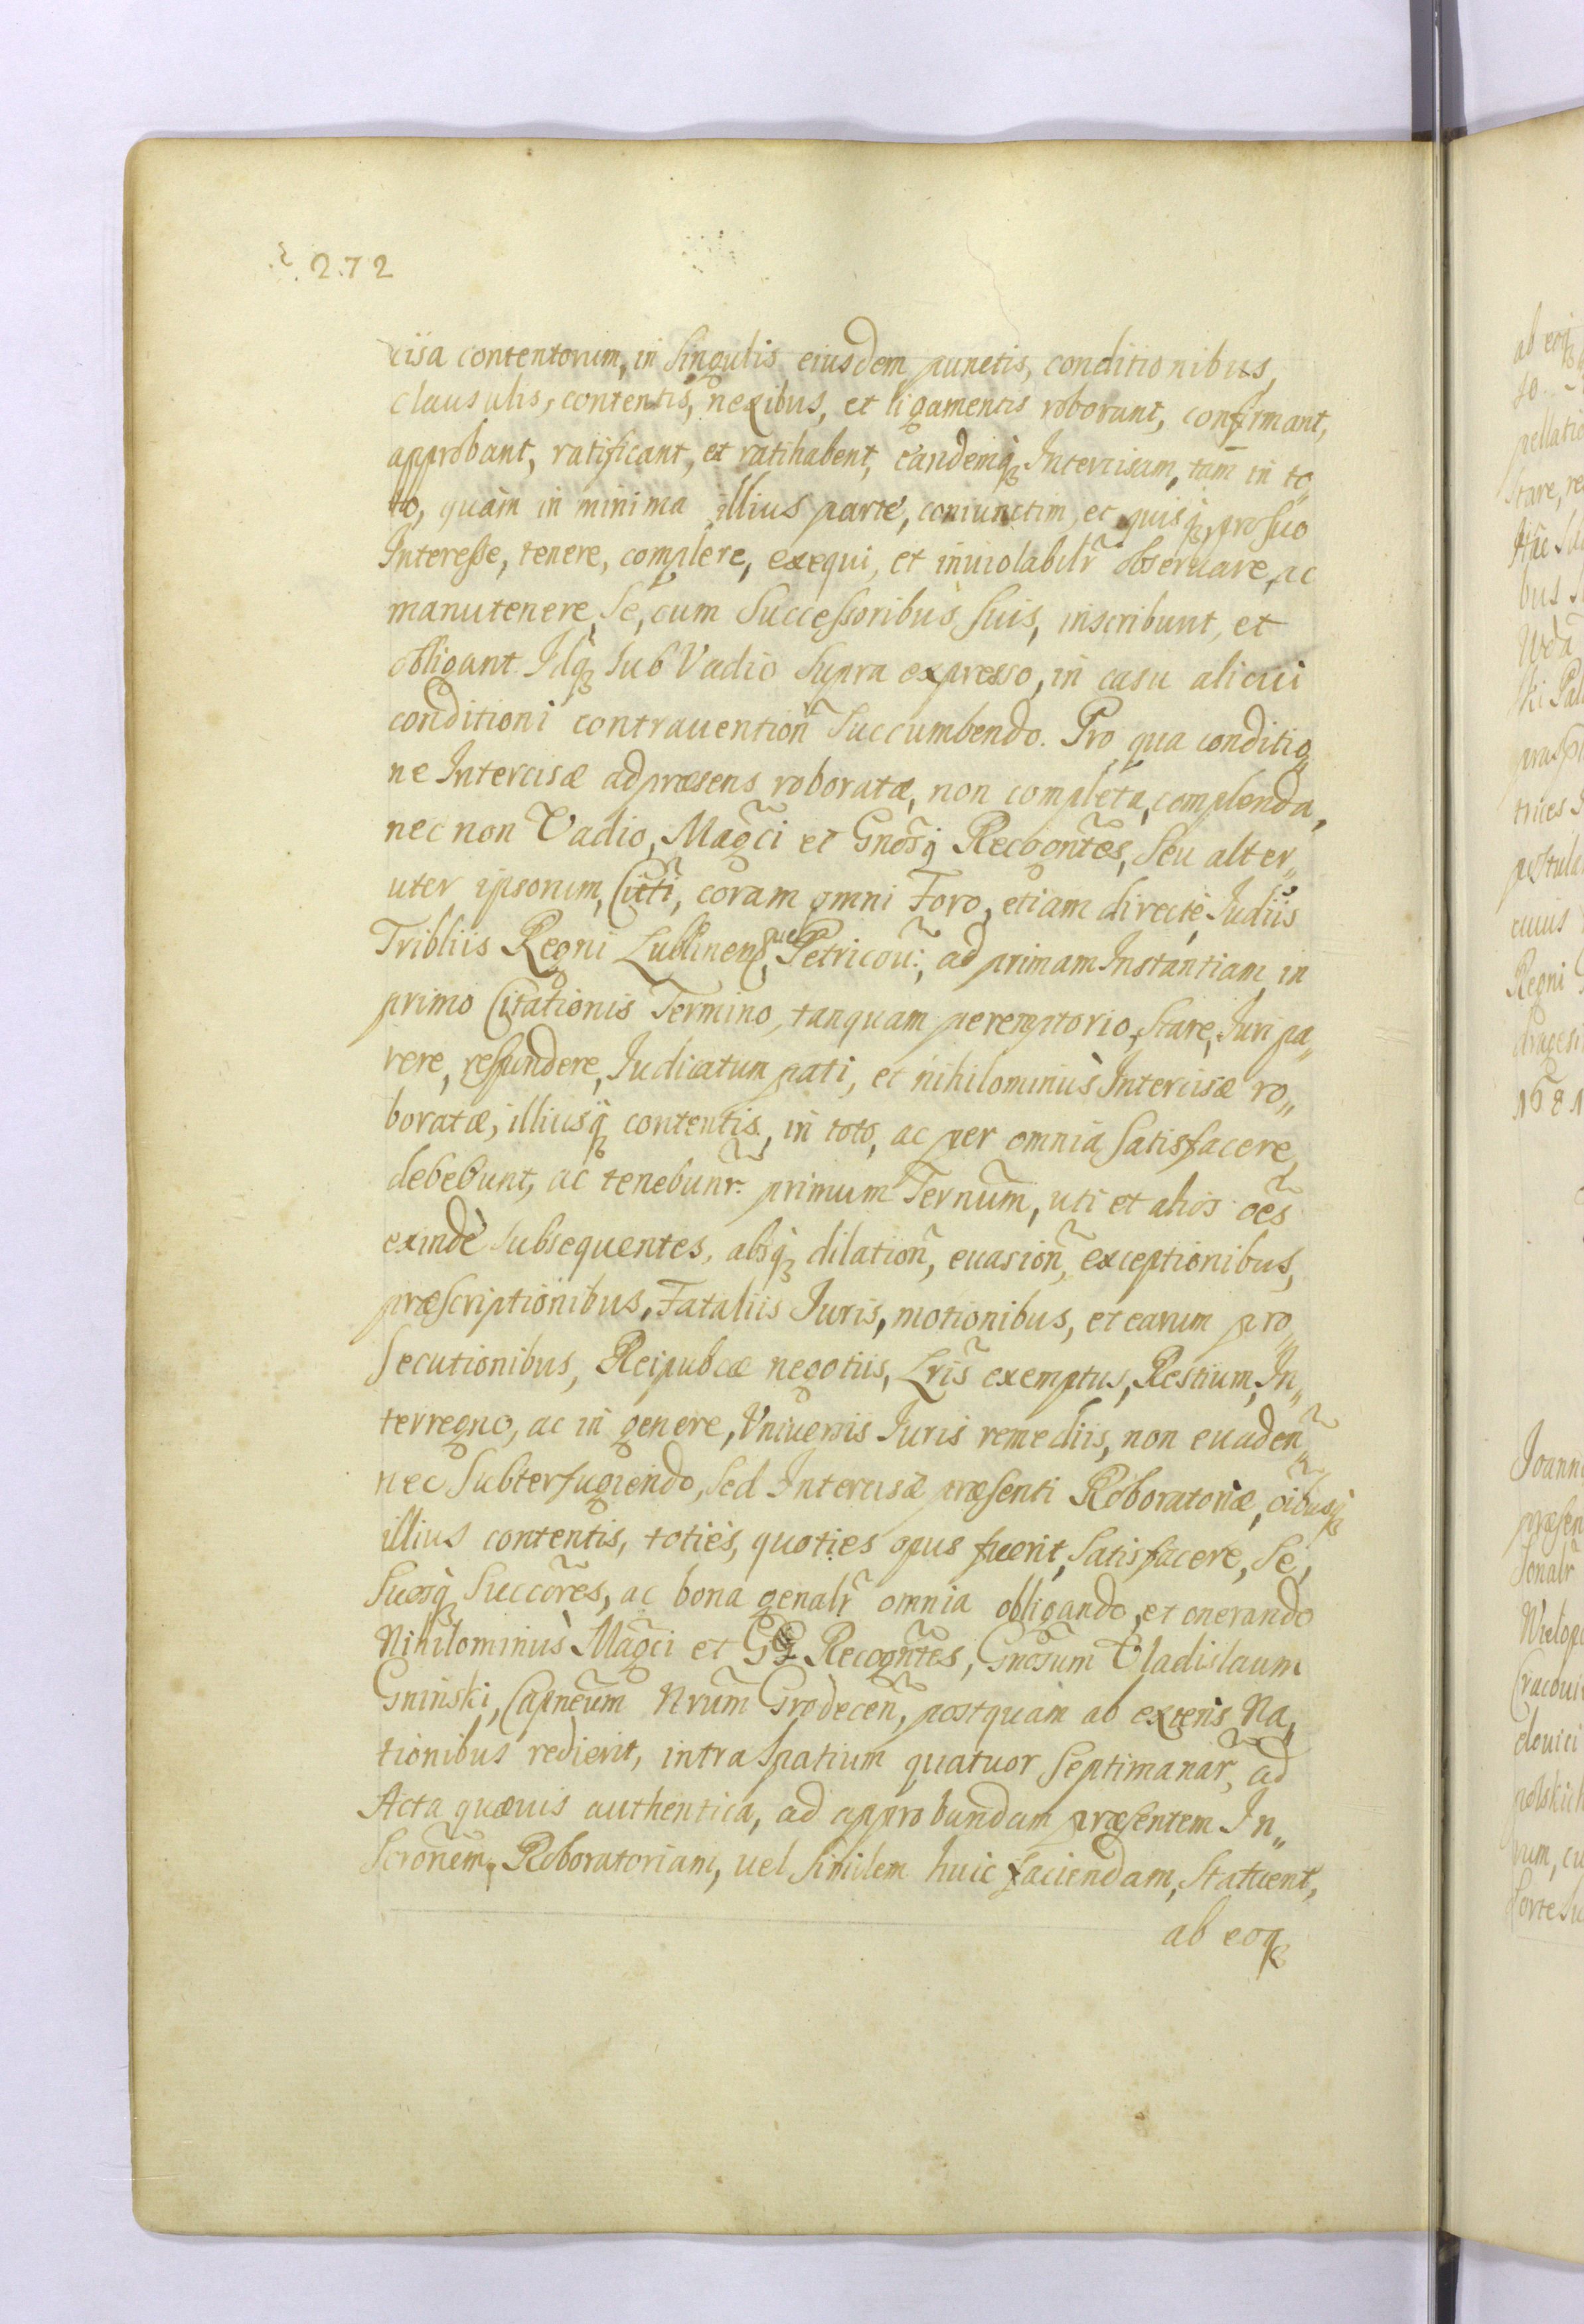 272
cisa contentorum, in Singulis eiusdem punctis, conditionibus,
clausulis, contentis, nexibus, et ligamentis roborant, confirmant,
approbant, ratificant, et ratihabent, eandemq; Intercisam, tam in to„
to, quàm in minima illius parte, coniunctim, et quisq; pro suo
Interesse, tenere, complere, exequi, et inuiolabilr̃ obseruare, ac
manutenere, Se, cum Successoribus Suis, inscribunt, et
obligant. Idq; Sub Vadio Supra expresso, in casu alicui
conditioni contrauentioñ Succumbendo. Pro qua conditio„
ne Intercisæ ad præsens roboratæ, non completa, complenda,
nec non Vadio, Mag̃ci et Gnosq̃ Recog̃ntes, Seu alter„
uter ipsorum, Cit̃ti, coram omni Foro, etiam directè Iudiis
Tribliis Regni Lublinens, uel Petricou:, ad primam Instantiam, in
primo Citationis Termino, tanquam peremptorio, Stare, Iuri pa„
rere, respondere, Iudicatum pati, et nihilominùs Intercisæ ro„
boratæ, illiusq; contentis, in toto, ac per omnia Satisfacere,
debebunt, ac tenebunr̃. primum Ternum̃, uti et alios oẽs
exindè subsequentes, absq; dilatioñ, euasioñ, exceptionibus,
præscriptionibus, Fataliis Iuris, motionibus, et earum pro„
secutionibus, Reipubcæ negotiis, Lris̃ exemptus, Restium, In„
terregno, ac in genere, Vniuersis Iuris remediis, non euadeñ
nec Subterfugiendo, Sed Intercisæ præsenti Roboratoriæ, oĩbusq;
illius contentis, toties, quoties opus fuerit, Satisfacere, Se,
Suosq; Succõres, ac bona genalr̃ omnia obligando, et onerando
Nihilominùs Mag̃ci et GG Recog̃ntes, Gnos̃um Vladislaum
Gninski, Capneũm Nrũm Grodeceñ, postquàm ab exteris Na„
tionibus redierit, intra Spatium quatuor Septimanar̃, ad
Acta quæuis authentica, ad approbandam præsentem In„
Scronẽm, Roboratoriam, uel Similem huic faciendam, Statuent,
ab eoq;